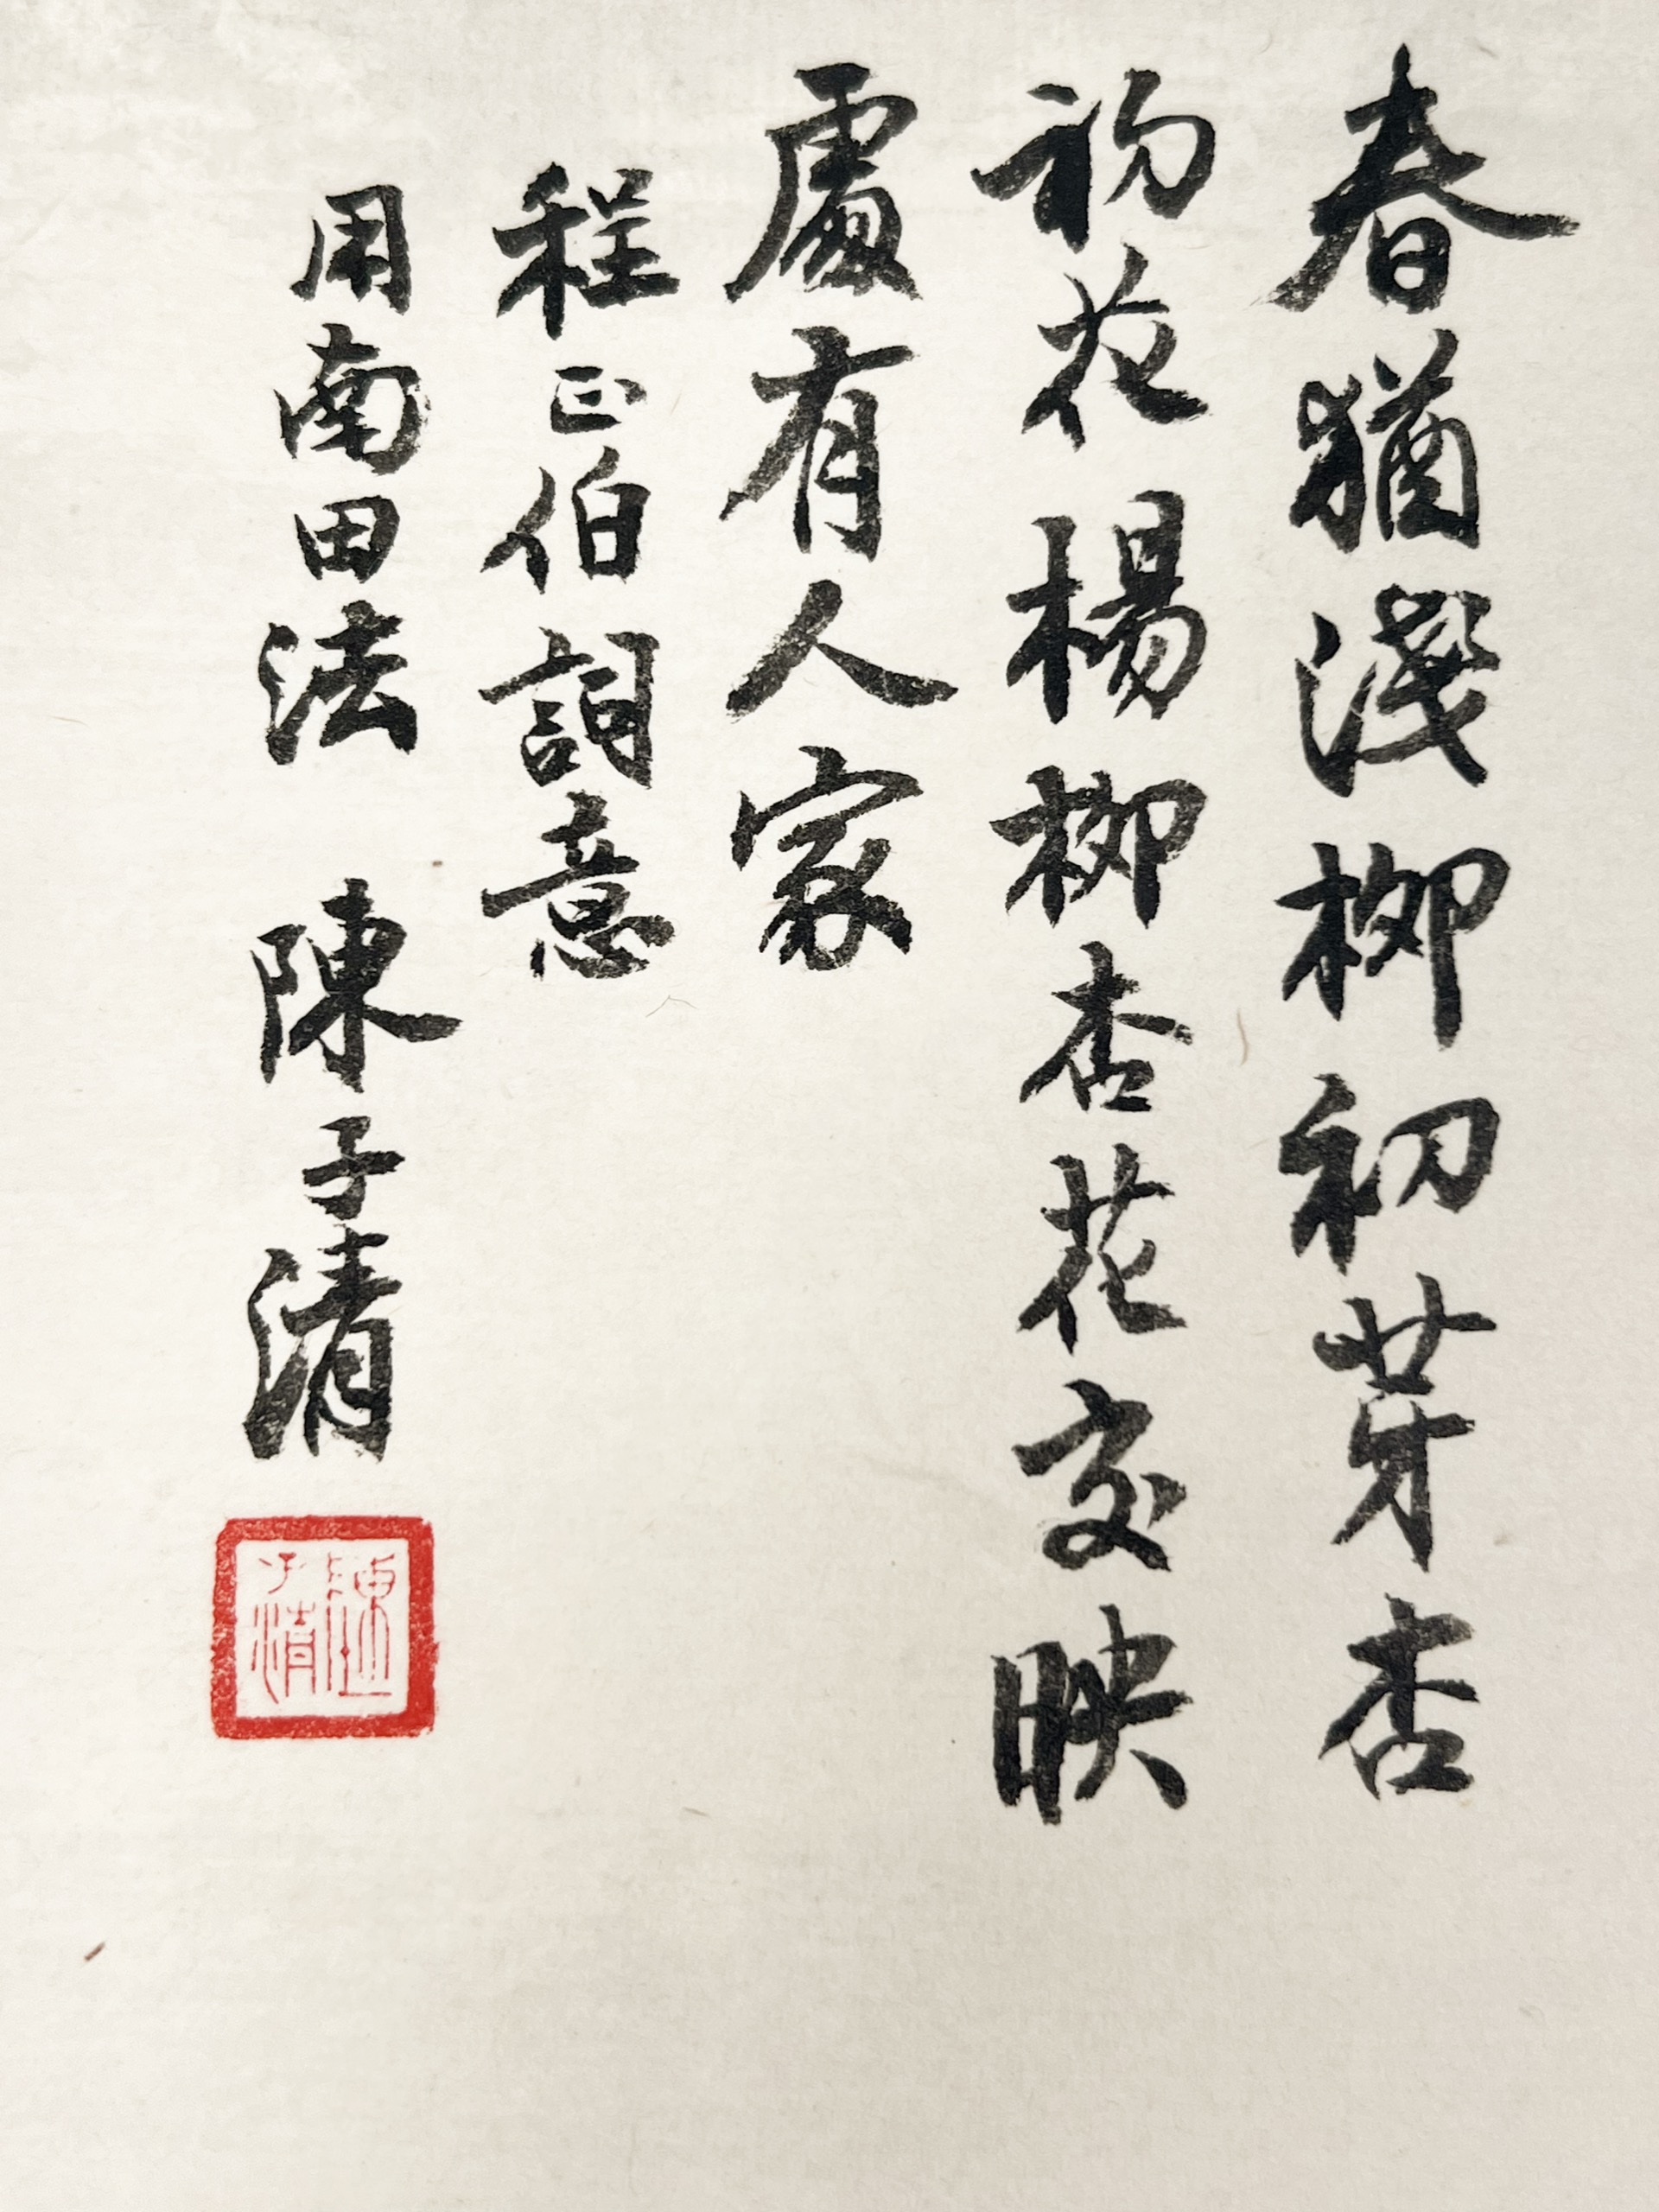 春猶淺柳初芽杏
初花楊柳杏花交映
處有人家
程正伯詞意
用南田法 陳子清
陳子清